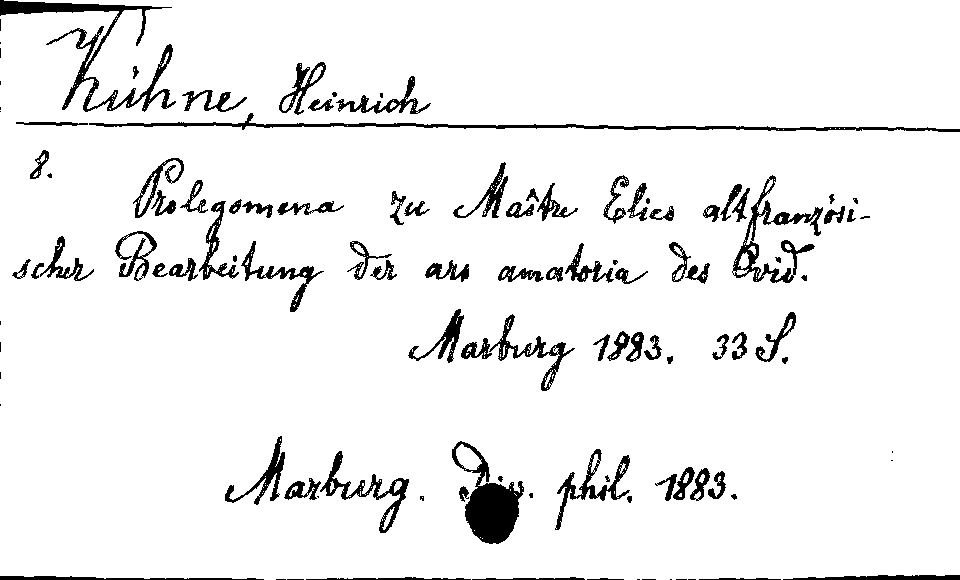 Kühne, Heinrich
8.
Prolegomena zu Maître Elies altfranzösi-
scher Bearbeitung der ars amatoria des Ovid.
Marburg 1883. 33 S.
Marburg. Diss. phil. 1883.